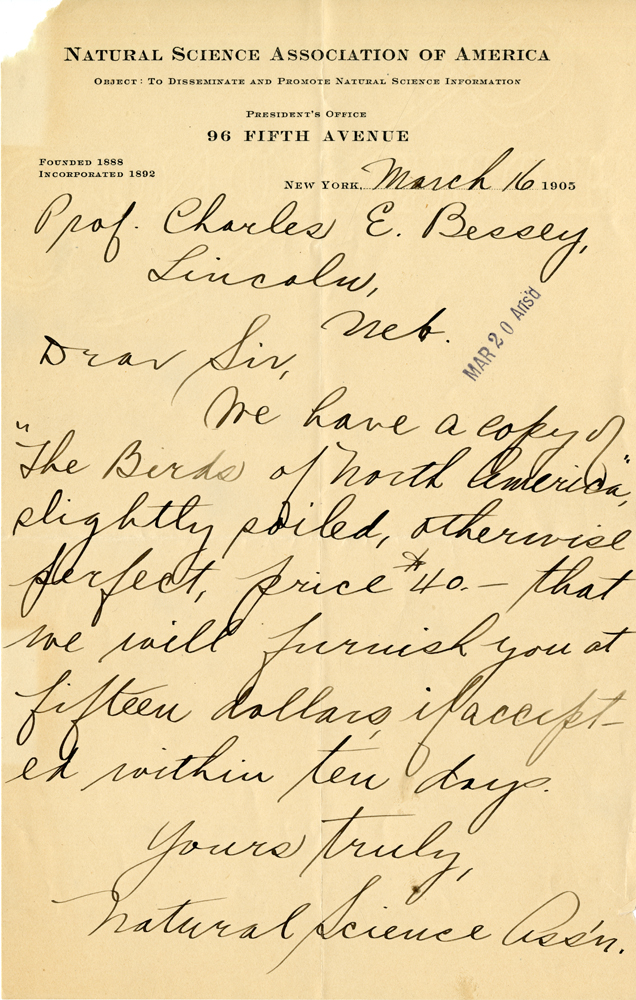 NATURAL SCIENCE ASSOCIATION OF AMERICA
OBJECT: TO DISSEMINATE AND PROMOTE NATURAL SCIENCE INFORMATION
PRESIDENT'S OFFICE
96 FIFTH AVENUE
FOUNDED 1888
INCORPORATED 1892
NEW YORK, March 16 1905
Prof. Charles E. Bessey,
Lincoln,
Neb.
MAR 20 Ans'd
Dear Sir,
We have a copy of
"The Birds of North America",
slightly soiled, otherwise
perfect, price $40.— that
we will furnish you at
fifteen dollars, if accept-
ed within ten days.
Yours truly,
Natural Science Ass'n.